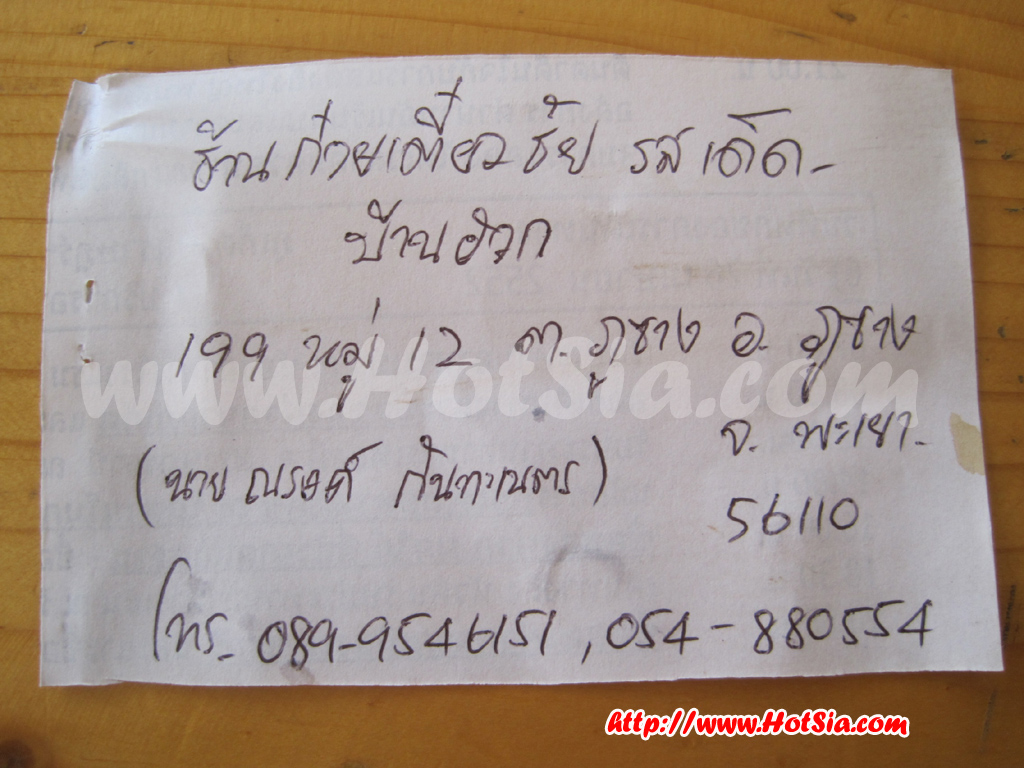 ร้านก๋วยเตี๋ยว ชัย รสเด็ด -
บ้านฮวก
199 หมู่ 12 ต. ภูซาง อ. ภูซาง
จ. พะเยา.
(นาย ณรงค์ กันทะเนตร)
56110
โทร. 089-9546151, 054-880554
www.HotSia.com
http://www.HotSia.com